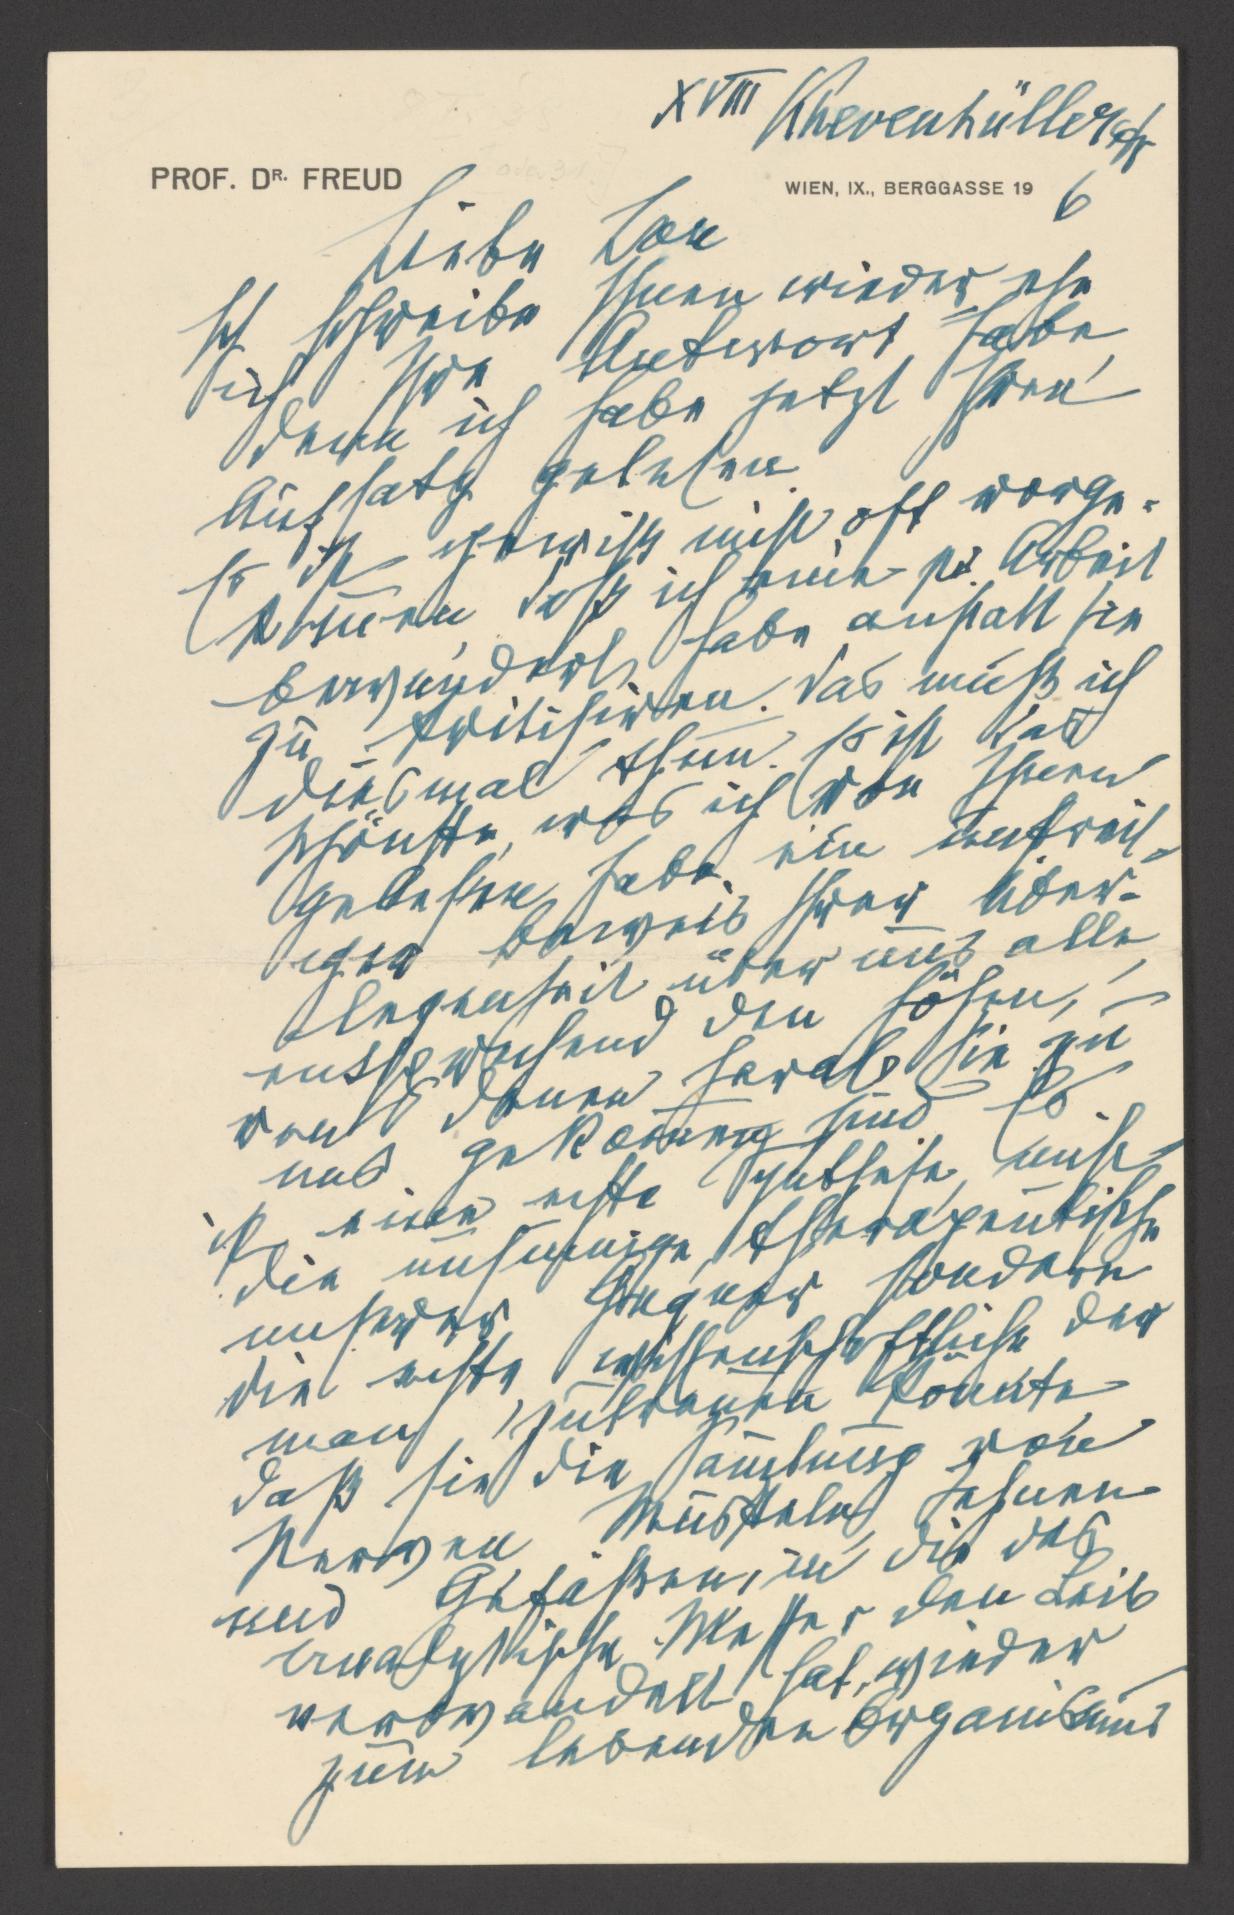 XVIII Khevenhüllerstr
6
PROF. DR. FREUD
WIEN, IX., BERGGASSE 19
Liebe Lou
Ich schreibe Ihnen wieder ehe
ich Ihre Antwort habe,
denn ich habe jetzt Ihren
Aufsatz gelesen.
Es ist gewiß nicht oft vorge-
kommen daß ich eine ψα Arbeit
bewundert habe anstatt sie
zu kritisiren. Das muß ich
diesmal thun. Es ist das
schönste, was ich von Ihnen
gelesen habe, ein unfreiwil-
liger Beweis Ihrer Über-
legenheit über uns alle,
entsprechend den Höhen,
von denen herab Sie zu
uns gekommen sind. Es
ist eine echte Synthese, nicht
die unsinnige, therapeutische
unserer Gegner sondern
die echte, wissenschaftliche der
man zutrauen könnte
daß sie die Sammlung von
Nerven Muskeln Sehnen
und Gefäßen, in die das
analytische Messer den Leib
verwandelt hat, wieder
zum lebenden Organismus